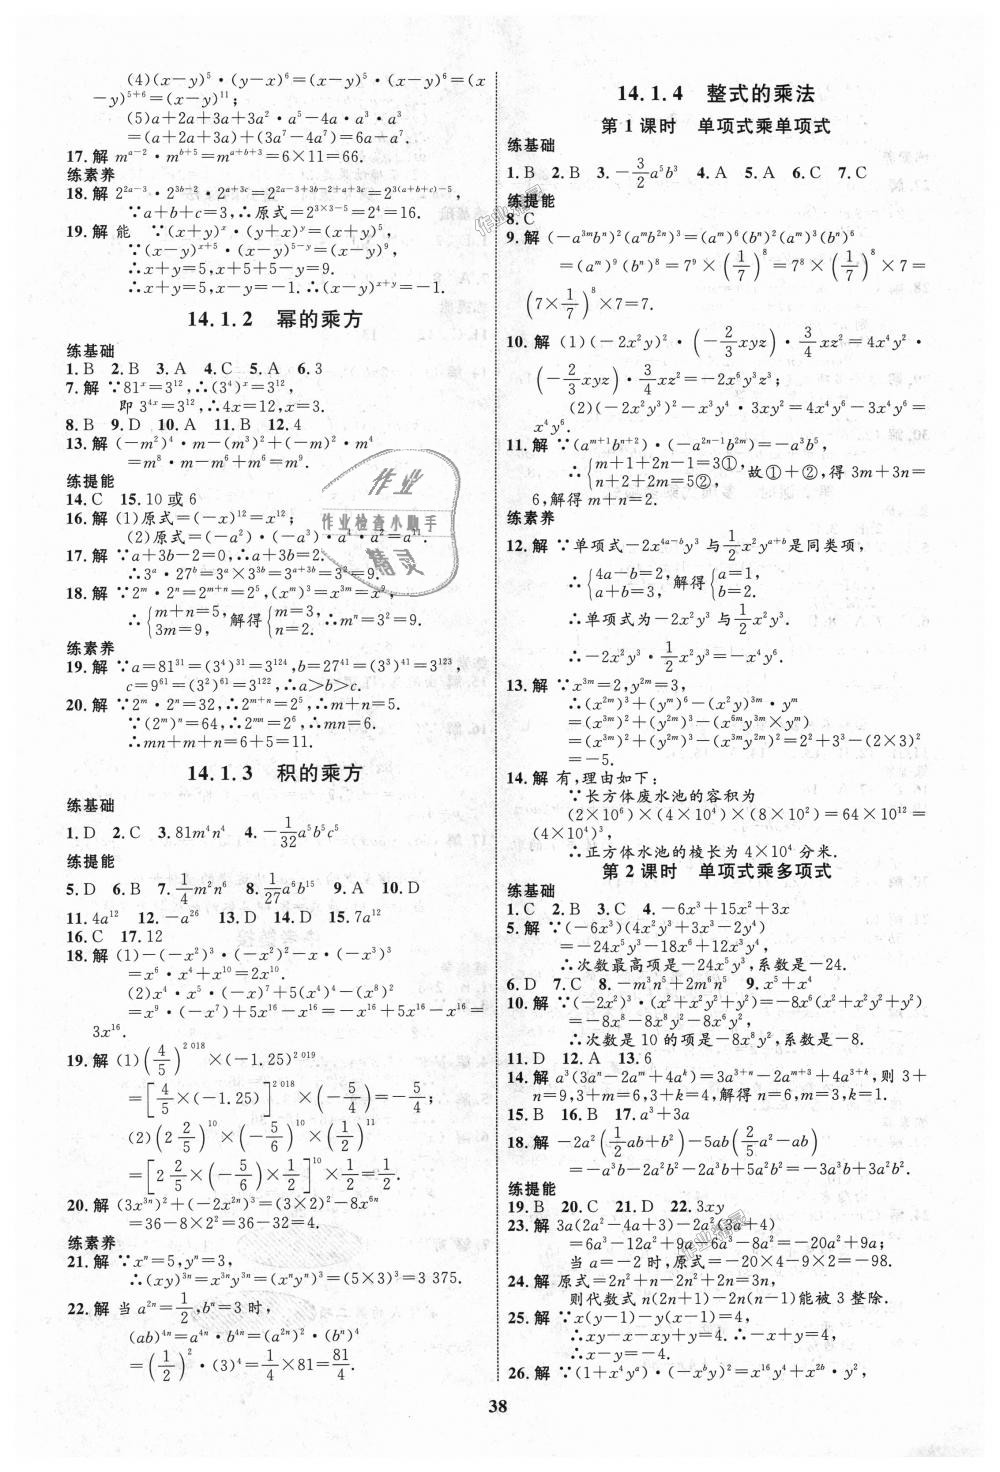 (4)(x－y)⁵·(y－x)⁶＝(x－y)⁵·(x－y)⁶＝(x
－y)⁵⁺⁶＝(x－y)¹¹；
(5)a＋2a＋3a＋3a²·a⁵－4a·a³·a³
＝(a＋2a＋3a)＋(3a⁷－4a⁷)＝6a－a⁷.
17.解 mᵃ⁻²·mᵇ⁺⁵＝mᵃ⁺ᵇ⁺³＝6×11＝66.
练素养
18.解 2^(2a－3)·2^(3b－2)·2^(a＋3c)＝2^(2a－3＋3b－2＋a＋3c)＝2^(3(a＋b＋c)－5),
∵a＋b＋c＝3,∴原式＝2^(3×3－5)＝2⁴＝16.
19.解 能 ∵(x＋y)ˣ·(y＋x)ʸ＝(x＋y)⁵,
∵(x－y)ˣ⁺⁵·(x－y)⁵⁻ʸ＝(x－y)⁹,
∴x＋y＝5,x＋5＋5－y＝9.
∴x＋y＝5,x－y＝－1.∴(x－y)ˣ⁺ʸ＝－1.
14.1.2 幂的乘方
练基础
1.B 2.B 3.A 4.C 5.A 6.3
7.解 ∵81ˣ＝3¹²,∴(3⁴)ˣ＝3¹²,
即 3⁴ˣ＝3¹²,∴4x＝12,x＝3.
8.B 9.D 10.A 11.B 12.4
13.解 (－m²)⁴·m－(m³)²＋(－m)²·m⁴
＝m⁸·m－m⁶＋m⁶＝m⁹.
练提能
14.C 15.10 或 6
16.解 (1)原式＝(－x)¹²＝x¹²；
(2)原式＝(－a²)·(－a³)·a⁴·a²＝a¹¹.
17.解 ∵a＋3b－2＝0,∴a＋3b＝2.
∴3ᵃ·27ᵇ＝3ᵃ×3³ᵇ＝3ᵃ⁺³ᵇ＝3²＝9.
18.解 ∵2ᵐ·2ⁿ＝2ᵐ⁺ⁿ＝2⁵,(xᵐ)³＝x³ᵐ＝x⁹,
∴{m＋n＝5, 3m＝9, 解得{m＝3, n＝2. ∴mⁿ＝3²＝9.
练素养
19.解 ∵a＝81³¹＝(3⁴)³¹＝3¹²⁴,b＝27⁴¹＝(3³)⁴¹＝3¹²³,
c＝9⁶¹＝(3²)⁶¹＝3¹²²,∴a＞b＞c.
20.解 ∵2ᵐ·2ⁿ＝32,∴2ᵐ⁺ⁿ＝2⁵,∴m＋n＝5.
∵(2ᵐ)ⁿ＝64,∴2ᵐⁿ＝2⁶,∴mn＝6.
∴mn＋m＋n＝6＋5＝11.
14.1.3 积的乘方
练基础
1.D 2.C 3.81m⁴n⁴ 4.－1/32 a⁵b⁵c⁵
练提能
5.D 6.B 7.1/4 m²n⁶ 8.1/27 a⁶b¹⁵ 9.A 10.D
11.4a¹² 12.－a²⁶ 13.D 14.D 15.7a¹²
16.C 17.12
18.解 (1)－(－x²)³·(－x²)²－x·(－x³)³
＝x⁶·x⁴＋x¹⁰＝2x¹⁰.
(2)x⁴·x⁵·(－x)⁷＋5(x⁴)⁴－(x⁸)²
＝x⁹·(－x⁷)＋5x¹⁶－x¹⁶＝－x¹⁶＋5x¹⁶－x¹⁶＝
3x¹⁶.
19.解 (1)(4/5)^2 018×(－1.25)^2 019
＝[4/5×(－1.25)]^2 018×(－5/4)＝－5/4；
(2)(2 2/5)¹⁰×(－5/6)¹⁰×(1/2)¹¹
＝[2 2/5×(－5/6)×1/2]¹⁰×1/2＝1/2.
20.解 (3x³ⁿ)²＋(－2x²ⁿ)³＝(3×2)²－8x⁶ⁿ
＝36－8×2²＝36－32＝4.
练素养
21.解 ∵xⁿ＝5,yⁿ＝3,
∴(xy)³ⁿ＝x³ⁿy³ⁿ＝(xⁿyⁿ)³＝(5×3)³＝3 375.
22.解 当 a²ⁿ＝1/2,bⁿ＝3 时,
(ab)⁴ⁿ＝a⁴ⁿ·b⁴ⁿ＝(a²ⁿ)²·(bⁿ)⁴
＝(1/2)²·(3)⁴＝1/4×81＝81/4.
14.1.4 整式的乘法
第 1 课时 单项式乘单项式
练基础
1.B 2.B 3.－3/2 a⁵b³ 4.A 5.A 6.C 7.C
练提能
8.C
9.解 (－a³ᵐbⁿ)²(aᵐb²ⁿ)³＝(aᵐ)⁶(bⁿ)²(aᵐ)³(bⁿ)⁶
＝(aᵐ)⁹(bⁿ)⁸＝7⁹×(1/7)⁸＝7⁸×(1/7)⁸×7＝
(7×1/7)⁸×7＝7.
10.解 (1)(－2x²y)²·(－2/3 xyz)·3/4 xz²＝4x⁴y²·
(－2/3 xyz)·3/4 xz²＝－2x⁶y³z³；
(2)(－2x²y³)²－x³y⁴·3xy²＝4x⁴y⁶－3x⁴y⁶＝
x⁴y⁶.
11.解 ∵(aᵐ⁺¹bⁿ⁺²)·(－a²ⁿ⁻¹b²ᵐ)＝－a³b⁵,
∴{m＋1＋2n－1＝3①, n＋2＋2m＝5②, 故①＋②,得 3m＋3n＝
6,解得m＋n＝2.
练素养
12.解 ∵单项式－2x⁴ᵃ⁻ᵇy³ 与1/2 x²yᵃ⁺ᵇ是同类项,
∴{4a－b＝2, a＋b＝3, 解得{a＝1, b＝2.
∴单项式为－2x²y³ 与1/2 x²y³.
∴－2x²y³·1/2 x²y³＝－x⁴y⁶.
13.解 ∵x³ᵐ＝2,y²ᵐ＝3,
∴(x²ᵐ)³＋(yᵐ)⁶－(x²y)³ᵐ·yᵐ
＝(x³ᵐ)²＋(y²ᵐ)³－(x⁶ᵐy³ᵐ×yᵐ)
＝(x³ᵐ)²＋(y²ᵐ)³－(x³ᵐy²ᵐ)²＝2²＋3³－(2×3)²
＝－5.
14.解 有,理由如下：
∵长方体废水池的容积为
(2×10⁶)×(4×10⁴)×(8×10²)＝64×10¹²＝
(4×10⁴)³,
∴正方体水池的棱长为 4×10⁴ 分米.
第 2 课时 单项式乘多项式
练基础
1.C 2.B 3.C 4.－6x³＋15x²＋3x
5.解 ∵(－6x³)(4x²y³＋3x³－2y⁴)
＝－24x⁵y³－18x⁶＋12x³y⁴,
∴次数最高项是－24x⁵y³,系数是－24.
6.D 7.C 8.－m³n⁵＋2m⁶n⁵ 9.x⁵＋x⁴
10.解 ∵(－2x²)³·(x²＋x²y²＋y²)＝－8x⁶(x²＋x²y²＋y²)
＝－8x⁸－8x⁸y²－8x⁶y²,
∴次数是 10 的项是－8x⁸y²,系数是－8.
11.D 12.A 13.6
14.解 a³(3aⁿ－2aᵐ＋4aᵏ)＝3a³⁺ⁿ－2aᵐ⁺³＋4a³⁺ᵏ,则 3＋
n＝9,3＋m＝6,3＋k＝4,解得n＝6,m＝3,k＝1.
15.B 16.B 17.a³＋3a
18.解 －2a²(1/2 ab＋b²)－5ab(2/5 a²－ab)
＝－a³b－2a²b²－2a³b＋5a²b²＝－3a³b＋3a²b².
练提能
19.B 20.C 21.D 22.3xy
23.解 3a(2a²－4a＋3)－2a²(3a＋4)
＝6a³－12a²＋9a－6a³－8a²＝－20a²＋9a；
当 a＝－2 时,原式＝－20×4－9×2＝－98.
24.解 原式＝2n²＋n－2n²＋2n＝3n,
则代数式 n(2n＋1)－2n(n－1)能被 3 整除.
25.解 ∵x(y－1)－y(x－1)＝4,
∴xy－x－xy＋y＝4.∴－x＋y＝4,
∴x－y＝－4.
26.解 ∵(1＋x⁴yᵃ)·(－xᵇy)²＝x¹⁶y⁴,＋x²ᵇ·y²,
38
作业
作业检查小助手
精灵